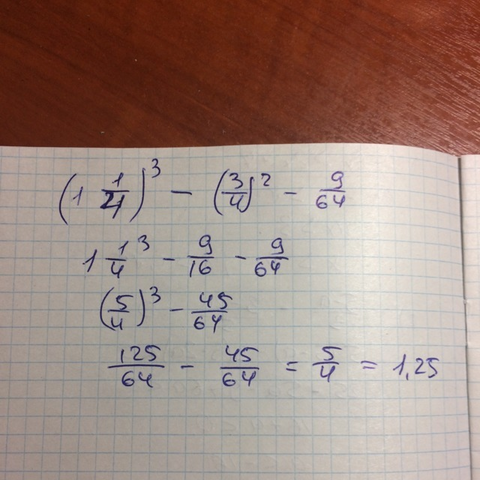 (1 1/4)^3 - (3/4)^2 - 9/64
1 1/4^3 - 9/16 - 9/64
(5/4)^3 - 45/64
125/64 - 45/64 = 5/4 = 1,25